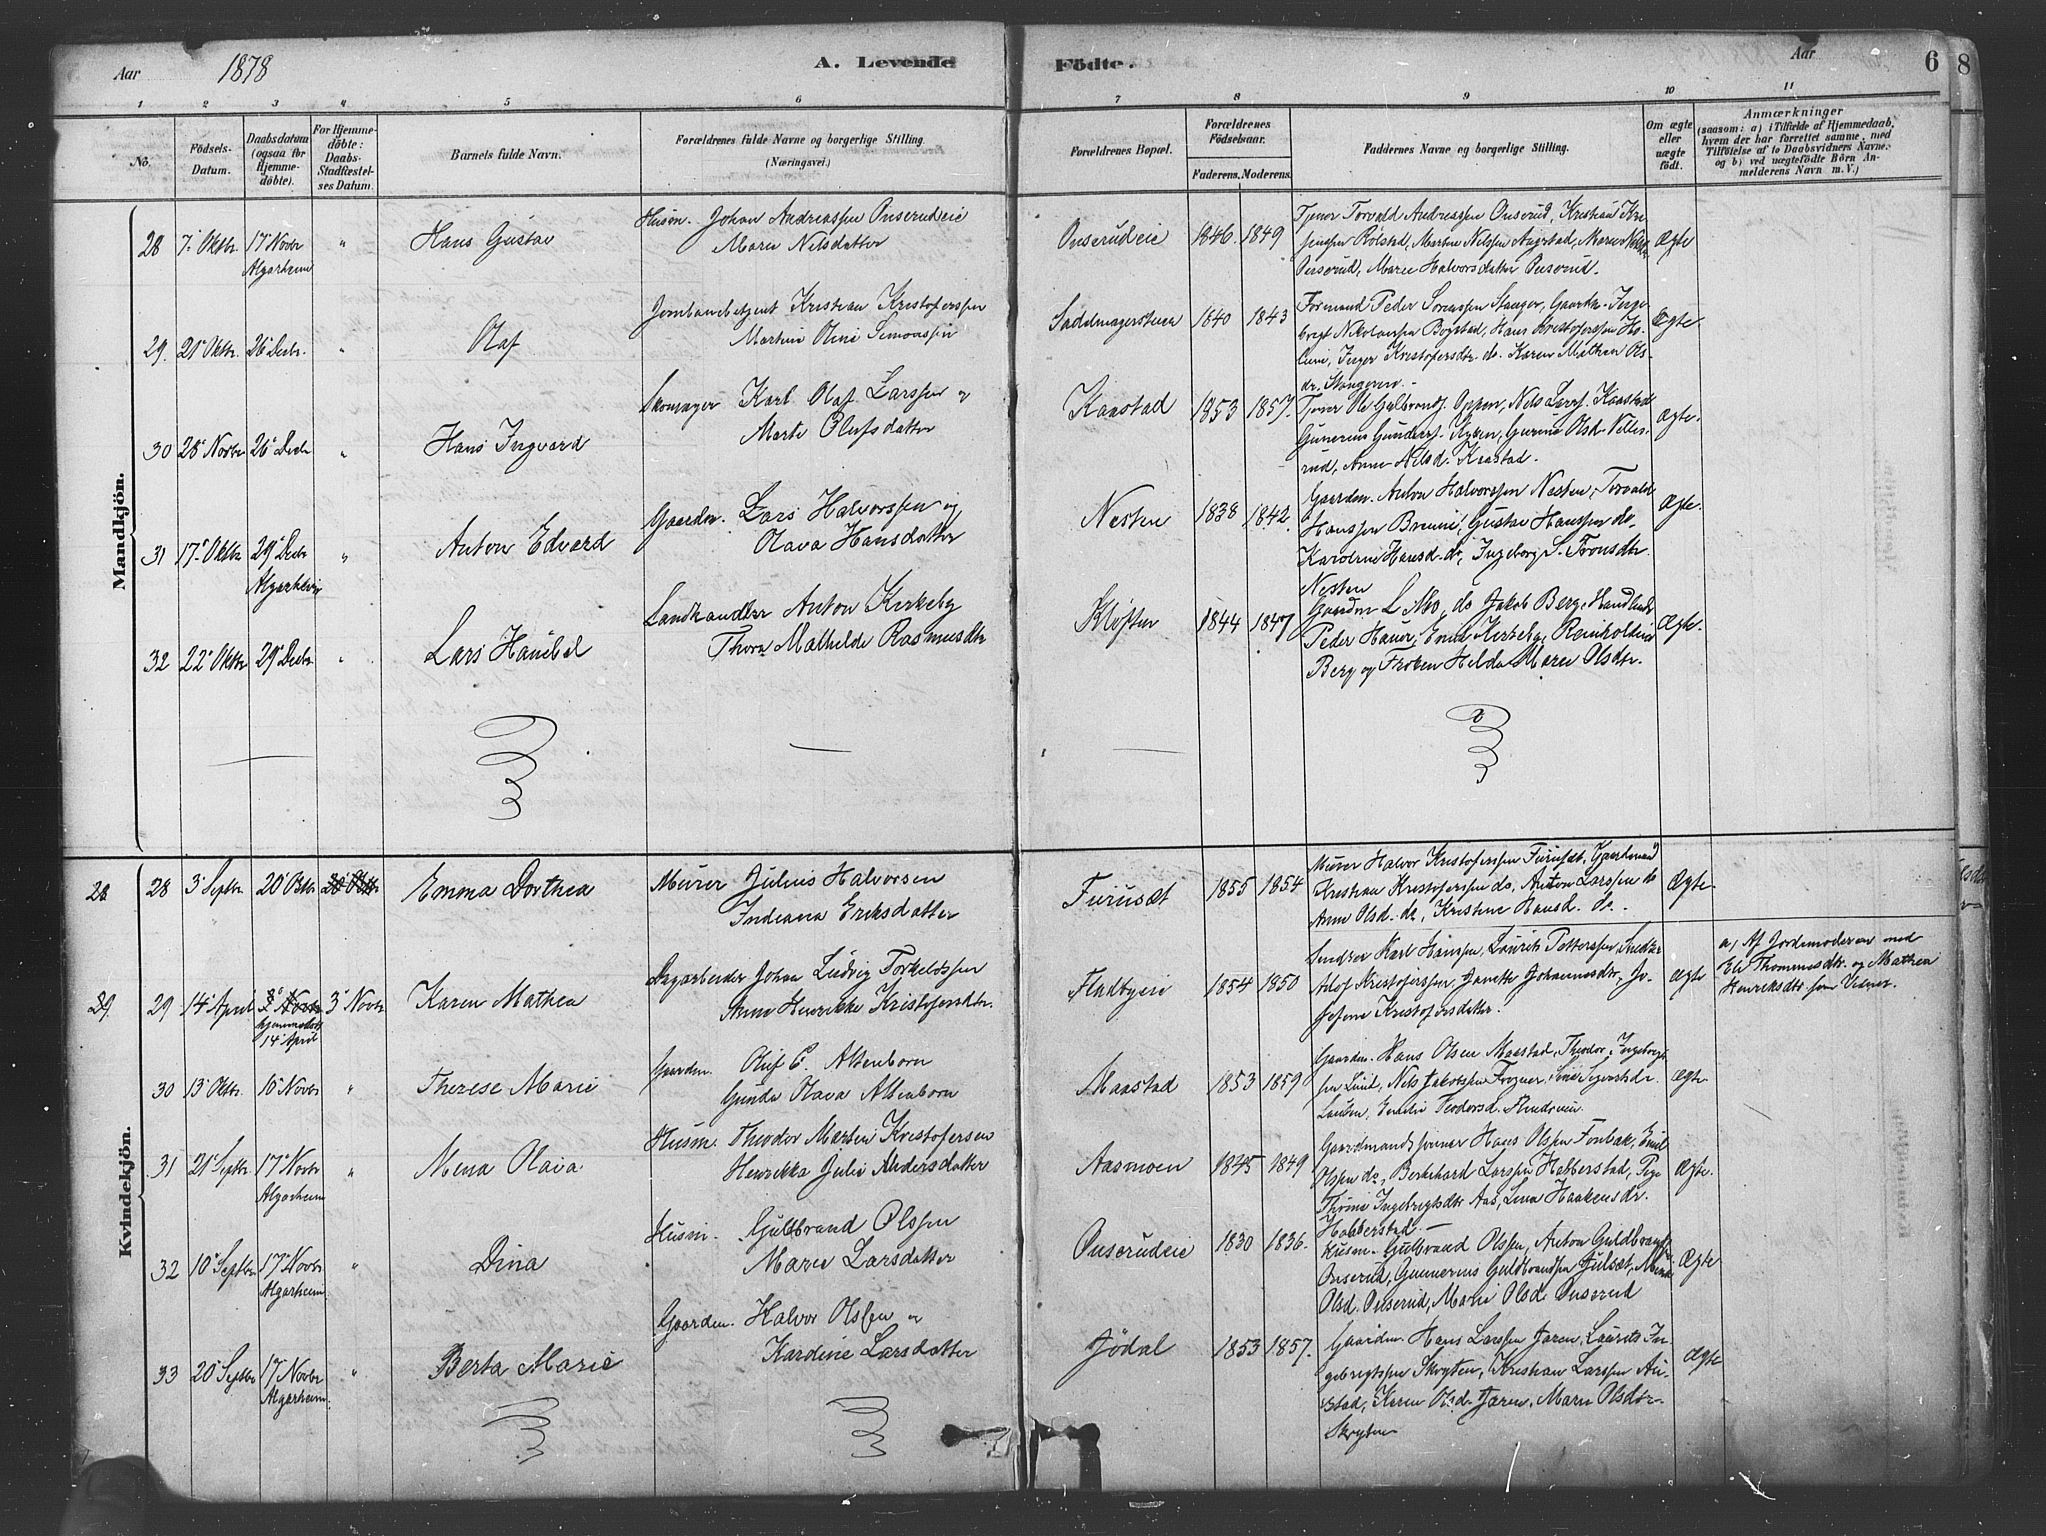 Aar 1878
A. Levende Födte.
Aar
6
8
1 2 3 4 5 6 7 8 9 10 11
No.
Födsels-Datum.
Daabsdatum (ogsaa for Hjemme-döbte).
For Hjemme-döbte: Daabs-Stadfæstel-ses Datum.
Barnets fulde Navn.
Forældrenes fulde Navne og borgerlige Stilling (Næringsvei.)
Forældrenes Bopæl.
Forældrenes Födselsaar.
Faderens. Moderens.
Faddernes Navne og borgerlige Stilling.
Om ægte eller uægte födt.
Anmærkninger
(saasom: a) i Tilfælde af Hjemmedaab,
hvem der har forrettet samme, med
Tilföielse af to Daabsvidners Navne.
og b) ved uægtefödte Börn An-
melderens Navn m. V.)
Mandkjön.
28 7. Oktbr. 17 Novbr Algarheim " Hans Gustav
Husm. Johan Andreassen Onserudeie
Maren Nilsdatter
Onserudeie 1846. 1849
Tjener Torvald Andreassen Onserud, Kristian
Rölstad, Martin Nilssen Augstad, Maren
Onserud, Maren Halvorsdatter Onserud.
Ægte
29. 21 Oktbr. 26 Decbr. " Olaf
Jernbanebetjent Kristian Kristofersen
Martine Oline Simonsen
1840 1843
Formand Peder Sörenssen Stanger, Gaardm. Inge-
brigt Nikolaisen Bogstad, Hans Kristofersen
Inger Kristofersdtr. do. Karen Mathea Ols-
dr. Stangeren. -
Ægte.
30 28 Novbr 26 Decbr " Hans Ingvard
Skomager Karl Olaf Larssen og
Marte Olufsdatter
Kaastad 1853 1857.
Tjener Ole Gulbrands. Oppen, Nils Larss. Kaastad
Gunerius Gunderss. Nyben, Gurine Olsd.
rud, Anne Nilsd. Kaastad.
Ægte.
31 17. Oktbr 29 Decbr Algarheim " Anton Edvard
Gaardm. Lars Halvorssen og
Olava Hansdatter
Nesten 1838 1842.
Gaardm. Anton Halvorssen Nesten, Torvald
Hanssen Brenni, Gustav Hanssen do.
Karoline Hansd. do, Ingeborg S. Tronsdtr.
Nesten
Ægte.
32 22 Oktbr 29 Decbr " Lars Hanibal
Landhandler Anton Kirkeby
Thora Mathilde Rasmusdtr
Klöften 1844 1847
Gaardm L. do Jakob Berg, Handlende
Peder Hauer, Emil Kirkeby, Reinholdine
Berg og Fröken Helda Maren Olsdtr.
Ægte.
Kvindekjön.
28 28 3 Septbr. 20 Oktbr Emma Dorthea
Murer Julius Halvorsen
Indiana Eriksdatter
Furuset 1855 1854
Murer Halvor Kristofersen Furuset, Gaardmand
Kristian Kristofersen do, Anton Larssen do
Anne Olsd. do, Kristine Hansd. do. -
Ægte.
29. 29 14 April 3 Novbr hjemmedöbt 14 April 3 Novbr Karen Mathea
Dagarbeider Johan Ludvig Torkelsen
Anne Henrikke Kristofersdtr.
Fladbyeie 1854 1850
Karl Hanssen, Laurits Petterssen,
Adolf Kristoferssen, Janette Johannesdtr, Jo-
sefine Kristofersdatter.
Ægte
a, Af Jordemoderen med
Eli Thommesdtr. og Mathea
Henriksdtr som Vidner.
30 13 Oktbr. 10 Novbr " Therese Marie
Gaardm. Oluf C. Altenborn
Gunda Olava Altenborn
Maastad 1853 1859
Gaardm. Hans Olsen Maastad, Theodor Ingebrigt-
sen Lund, Nils Jakobssen Frogner,
Emilie Teodorsd.
Ægte.
31 21 Septbr 17 Novbr Algarheim " Mena Olava.
Husm. Theodor Martin Kristofersen
Henrikka Julie Andersdatter
Aasmoen 1845 1849
Gaardmandssönner Hans Olssen Fonbæk, Emil
Olssen do, Bernhard Larssen Habberstad, Pige
Ingebrigtsdtr Aas, Lina Haakensdr.
Habberstad. -
Ægte.
32 10 Septbr 17 Novbr Algarheim " Dina
Husm. Gulbrand Olssen
Maren Larsdatter
Onserudeie 1830 1836.
Husm. Gulbrand Olssen, Anton Guldbrandsen
Onserud, Gunnerius Guldbrandsen Julset,
Olsd. Onserud, Marie Olsd. Onserud
Ægte
33 20 Septbr 17 Novbr Algarheim. " Berta Marie
Gaardm. Halvor Olssen og
Karoline Larsdatter
Jödal 1853 1857.
Gaardm. Hans Larssen Jaren, Laurits In-
gebrigtsen Skryten, Kristian Larssen Au-
stad, Karen Olsd. Jaren, Maren Olsdtr.
Skryten
Ægte